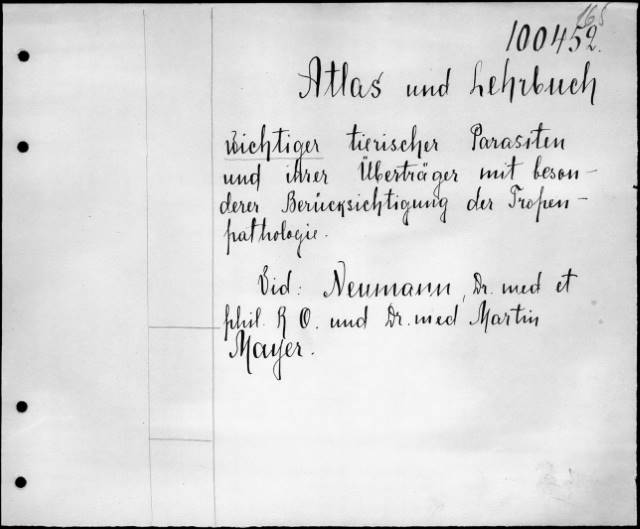 265
100452.
Atlas und Lehrbuch
wichtiger tierischer Parasiten
und ihrer Überträger mit beson-
derer Berücksichtigung der Tropen-
pathologie.
Vid: Neumann, Dr. med et
phil. R O. und Dr. med Martin
Mayer.